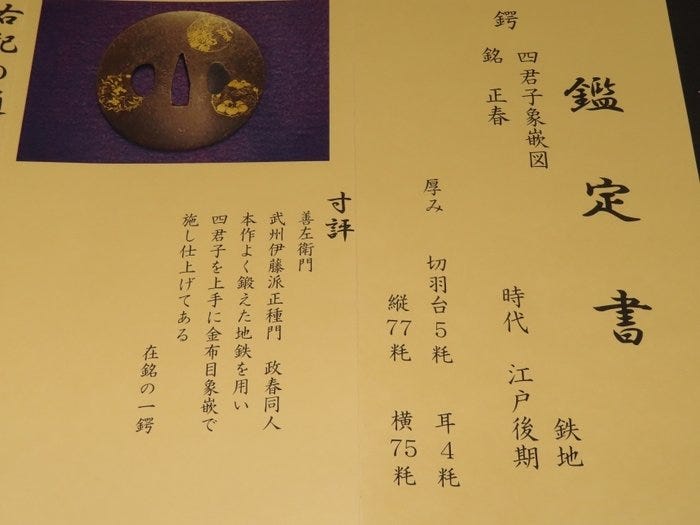 鑑定書
鍔　四君子象嵌図　鉄地
銘　正春　時代　江戸後期
厚み　切羽台5粍　耳4粍
縦77粍　横75粍
寸評
善左衛門
武州伊藤派正種門　政春同人
本作よく鍛えた地鉄を用い
四君子を上手に金布目象嵌で
施し仕上げてある
在銘の一鍔
右記の